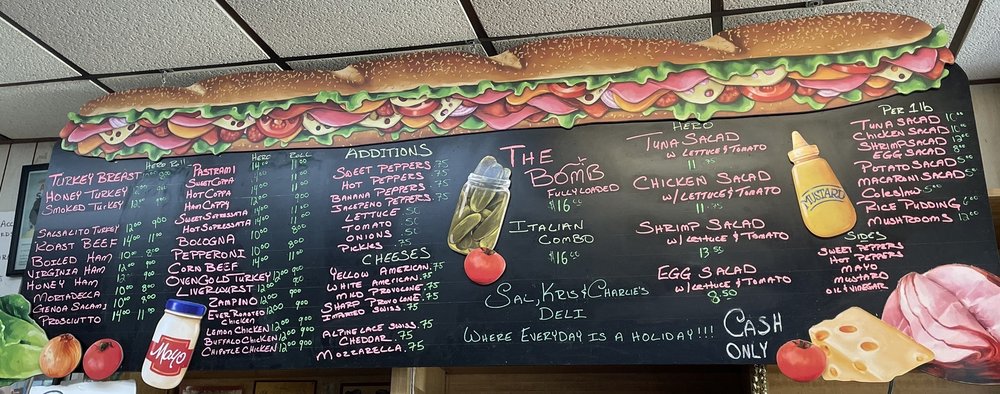 Hero Roll
Turkey Breast
Honey Turkey
Smoked Turkey
Salsalito Turkey 12.00 9.00
Roast Beef 14.00 11.00
Boiled Ham
Virginia Ham
Honey Ham
Mortadella
Genoa Salami
Prosciutto
Hero Roll
Pastrami 14.00 11.00
Sweet Coppa
Hot Coppa
Ham Cappy
Sweet Sopressata
Hot Sopressata
Bologna
Pepperoni
Corn Beef
OvenGold Turkey
Liverwurst
Zampino
Ever Roasted
Chicken
Lemon Chicken
Buffalo Chicken
Chipotle Chicken
Additions
Sweet Peppers .75
Hot Peppers .75
Banana Peppers .75
Jalapeno Peppers .75
Lettuce
Tomato
Onions
Pickles .75
Cheeses
Yellow American .75
White American .75
Mild Provolone .75
Sharp Provolone .75
Imported Swiss .75
Alpine Lace Swiss .75
Cheddar .75
Mozzarella .75
The
Bomb
Fully Loaded
$16.50
Italian
Combo
$16.50
Sal, Kris & Charlie's
Deli
Where Everyday is a Holiday!!!
Hero
Tuna Salad
w/ Lettuce & Tomato
11.75
Chicken Salad
w/ Lettuce & Tomato
11.75
Shrimp Salad
w/ Lettuce & Tomato
13.50
Egg Salad
w/ Lettuce & Tomato
8.50
Cash
Only
Per 1lb
Tuna Salad
Chicken Salad
Shrimp Salad
Egg Salad
Potato Salad
Macaroni Salad
Coleslaw 5.00
Rice Pudding 6.00
Mushrooms 12.00
Sides
Sweet Peppers
Hot Peppers
Mayo
Mustard
Oil & Vinegar
Mustard
Mayo